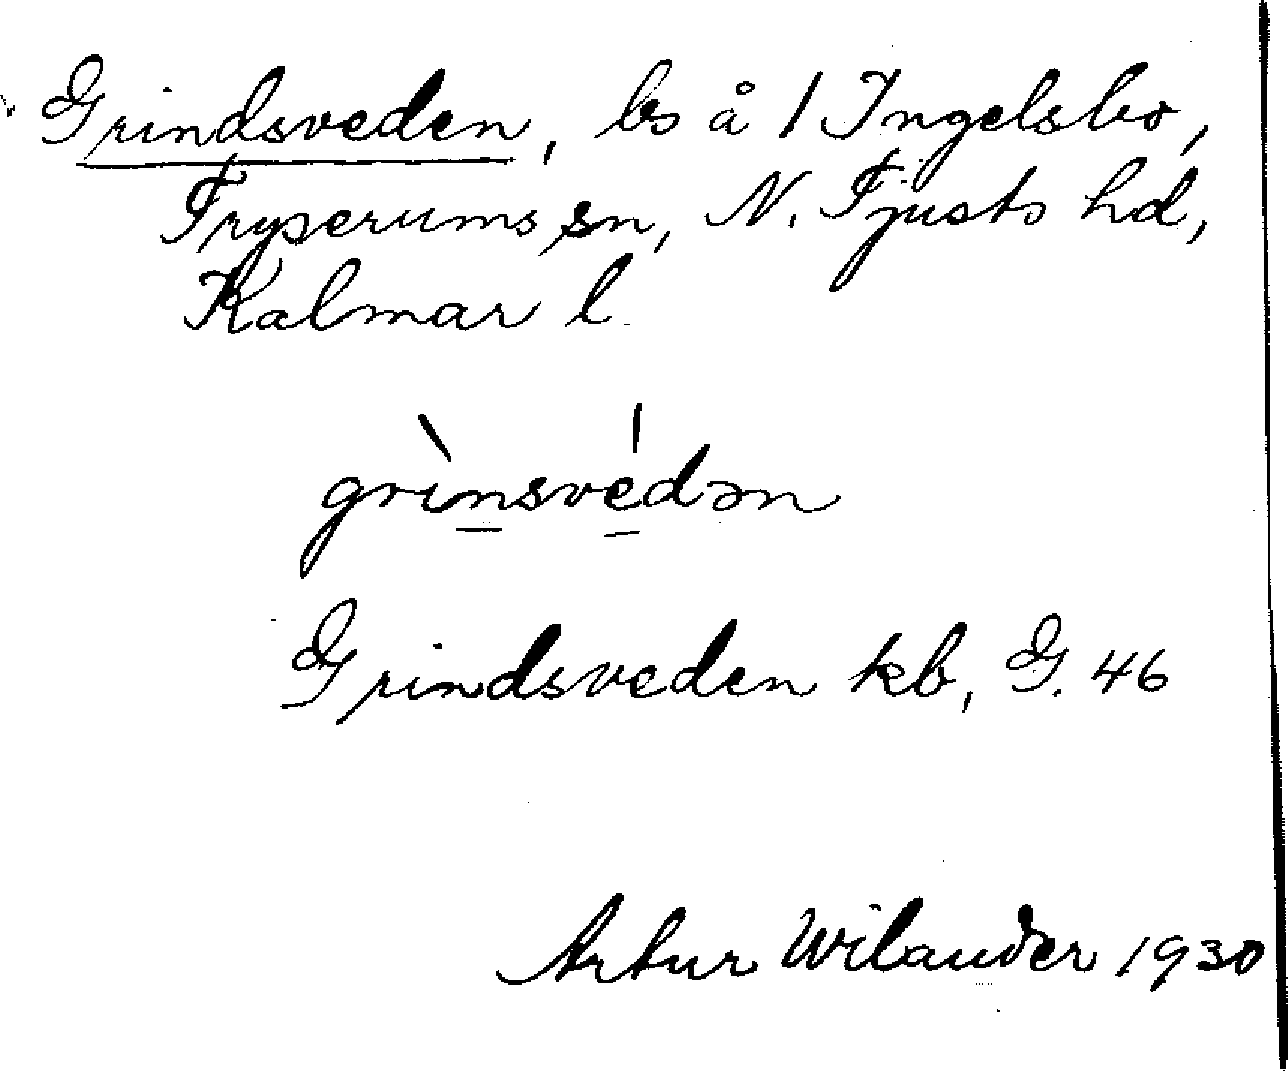 Grindsveden, bs å 1 Ingelsbo,
Tryserums sn, N. Tjusts hd,
Kalmar l.
grìnsvédən
Grindsveden kb, G. 46
Artur Wilander 1930